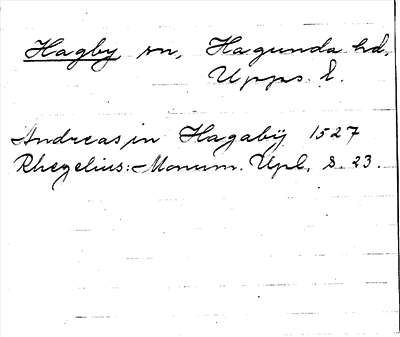 Hagby sn, Hagunda hd,
Upps. l.
Andreas in Hagabÿ 1527
Rhezelius: Monum. Upl. s. 23.